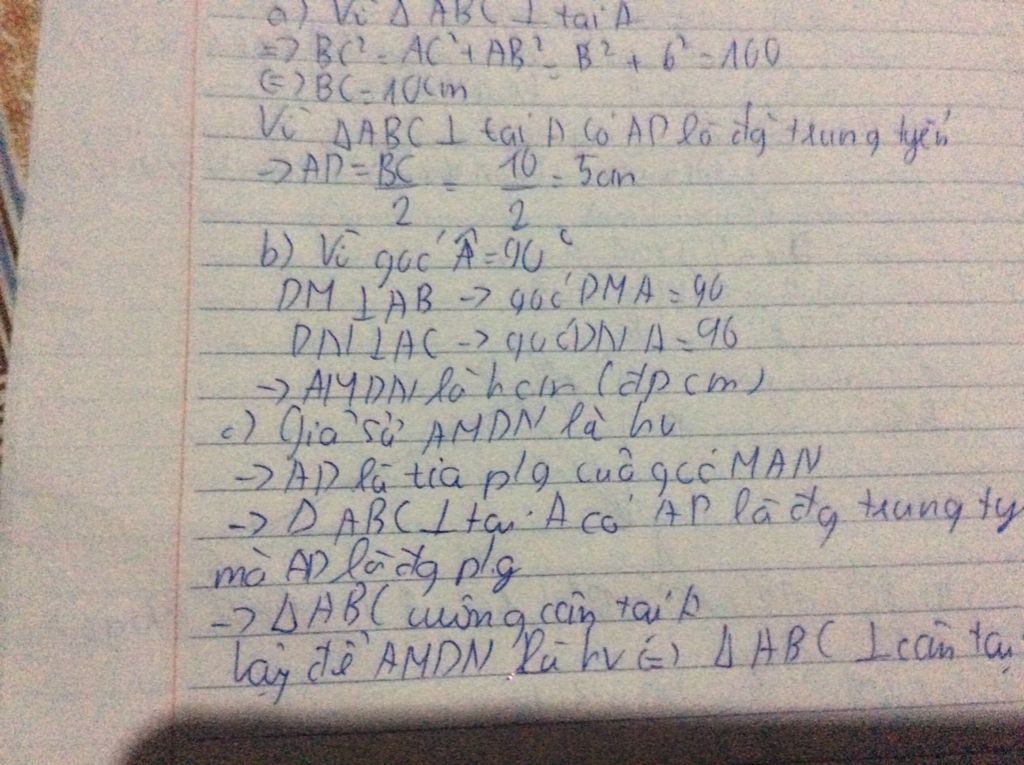 a) Vì Δ ABC ⊥ tại A
=> BC² = AC² + AB² = 8² + 6² = 100
(=) BC = 10cm
Vì ΔABC ⊥ tại A có AD là đg trung tyến
-> AD = BC/2 = 10/2 = 5cm
b) Vì góc Â = 90°
DM ⊥ AB -> góc DMA = 90
DN ⊥ AC -> góc DNA = 90
-> AMDN là hcn (đpcm)
c) Giả sử AMDN là hv
-> AD là tia p/g cuả góc MAN
-> Δ ABC ⊥ tại A có AD là đg trung ty
mà AD là đg p/g
-> Δ ABC vuông cân tại A
Vậy để AMDN là hv (=) Δ ABC ⊥ cân tại